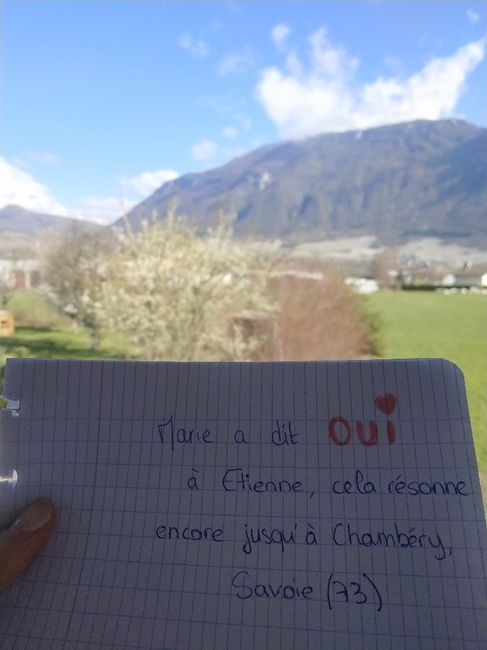 Marie a dit OUI
à Etienne, cela résonne
encore jusqu'à Chambéry,
Savoie (73)